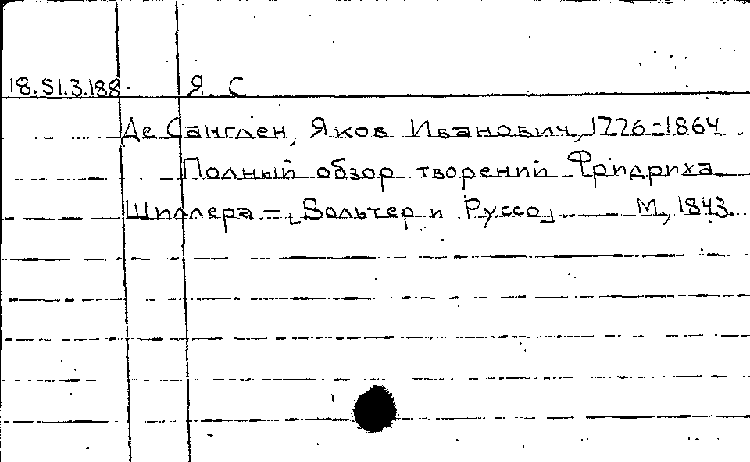 18.51.3.188. Я. С
Де Санглен, Яков Иванович, 1776-1864
Полный обзор творений Фридриха
Шиллера. — [Вольтер и Руссо] М, 1843.